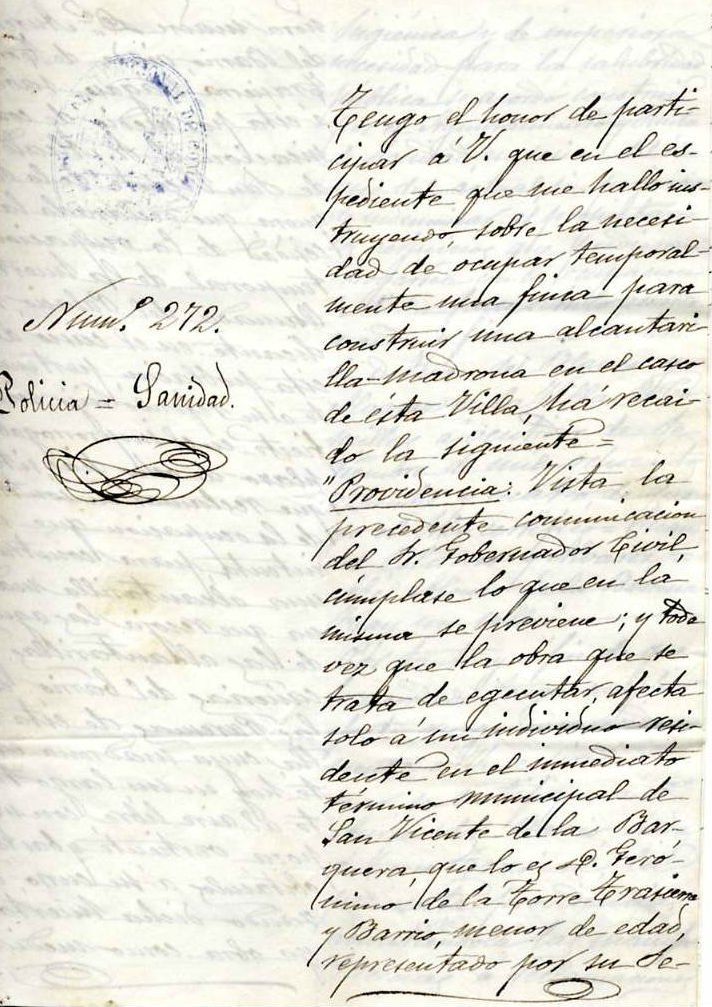 Num.º 272.
Policia = Sanidad.
Tengo el honor de parti-
cipar á V. que en el es-
pediente que me hallo ins-
truyendo, sobre la necesi-
dad de ocupar temporal-
mente una finca para
construir una alcantari
lla-madrona en el casco
de ésta Villa, há recai-
do la siguiente =
"Providencia: Vista la
precedente comunicacion
del Sr. Gobernador Civil,
cúmplase lo que en la
misma se previene; y toda
vez que la obra que se
trata de egecutar, afecta
solo á un individuo resi-
dente en el inmediato
término municipal de
San Vicente de la Bar-
quera, que lo es D. Geró-
nimo de la Torre Trasierra
y Barrio, menor de edad,
representado por su Se-